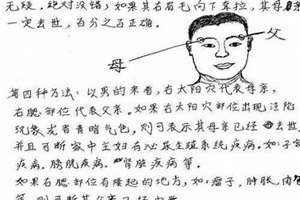 无疑。绝对没错；如果其右眉毛向下牵拉，其母亲
一定去世。百分之百正确。
父
母
第四种方法：以男的来看，右太阳穴代表母亲，
右腮部位代表父亲。如果右太阳穴部位出现注陷
现象或者青暗气色，则可表示其母亲已经去世，
并且可断家中主妇有泌尿生殖系统疾病。如：子宫
疾病。膀胱疾病。肾脏疾病等。
如果右腮部位有隆起的地方，如：痣子，肿胀，肉